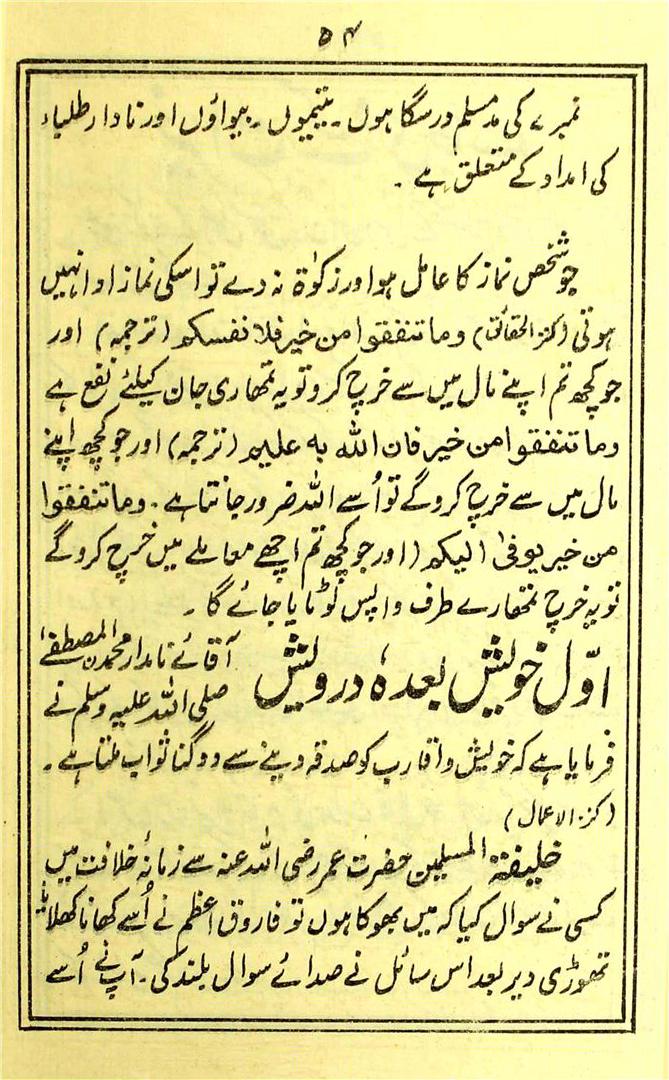 ۵۴
نمبر ۷ کی مد مسلم درسگاہوں۔ یتیموں۔ بیواؤں اور نادار طلباء
کی امداد کے متعلق ہے۔
جو شخص نماز کا عامل ہو اور زکوٰۃ نہ دے تو اسکی نماز ادا نہیں
ہوتی (کنز الحقائق) وماتنفقوا من خیر فلا نفسکم (ترجمہ) اور
جو کچھ تم اپنے مال میں سے خرچ کرو تو یہ تمھاری جان کیلئے نفع ہے
وما تنفقوا من خیر فان اللہ بہ علیم (ترجمہ) اور جو کچھ اپنے
مال میں سے خرچ کرو گے تو اُسے اللہ ضرور جانتا ہے۔ وماتنفقوا
من خیر یوفیٰ الیکم (اور جو کچھ تم اچھے معاملے میں خرچ کرو گے
تو یہ خرچ تمھارے طرف واپس لوٹایا جائے گا۔
اوّل خویش بعدہٗ درویش آقائے نامدار محمدن المصطفےٰ
صلی اللہ علیہ وسلم نے
فرمایا ہے کہ خویش واقارب کو صدقہ دینے سے دوگنا ثواب ملتا ہے۔
(کنز الاعمال)
خلیفۃ المسلمین حضرت عمر رضی اللہ عنہ سے زمانۂ خلافت میں
کسی نے سوال کیا کہ میں بھوکا ہوں تو فاروق اعظم نے اُسے کھانا کھلایا
تھوڑی دیر بعد اس سائل نے صدائے سوال بلند کی۔ آپ نے اُسے